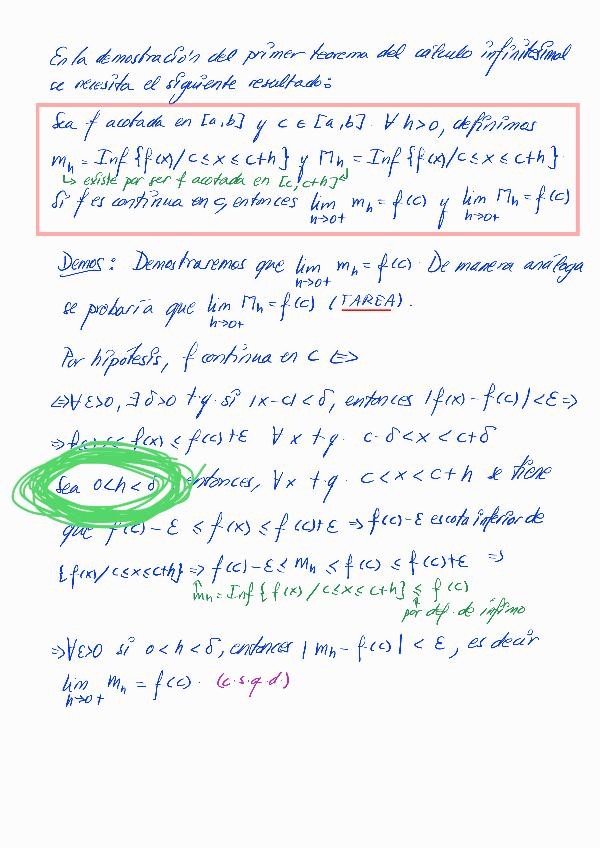 En la demostración del primer teorema del cálculo infinitesimal
se necesita el siguiente resultado:
Sea f acotada en [a,b] y c ∈ [a,b]. ∀ h>0, definimos
m_h = Inf {f(x)/ c ≤ x ≤ c+h} y M_h = Inf {f(x)/ c ≤ x ≤ c+h}.
↳ existe por ser f acotada en [c, c+h] ↲
Si f es continua en c, entonces lim m_h = f(c) y lim M_h = f(c)
h→0+ h→0+
Demos: Demostraremos que lim m_h = f(c). De manera análoga
h→0+
se probaría que lim M_h = f(c) (TAREA).
h→0+
Por hipótesis, f continua en c ⇔
⇔ ∀ε>0, ∃ δ>0 t.q. si |x-c| < δ, entonces |f(x) - f(c)| < ε ⇒
⇒ ≤ f(x) ≤ f(c)+ε ∀ x t.q. c-δ < x < c+δ
Sea 0<h<δ entonces, ∀ x t.q. c < x < c+h se tiene
que f(c)-ε ≤ f(x) ≤ f(c)+ε ⇒ f(c)-ε es cota inferior de
{f(x)/ c ≤ x ≤ c+h} ⇒ f(c)-ε ≤ m_h ≤ f(c) ≤ f(c)+ε ⇒
m_h = Inf {f(x) / c ≤ x ≤ c+h} ≤ f(c)
por def. de ínfimo
⇒ ∀ε>0 si 0<h<δ, entonces |m_h - f(c)| < ε, es decir
lim m_h = f(c). (c.s.q.d.)
h→0+